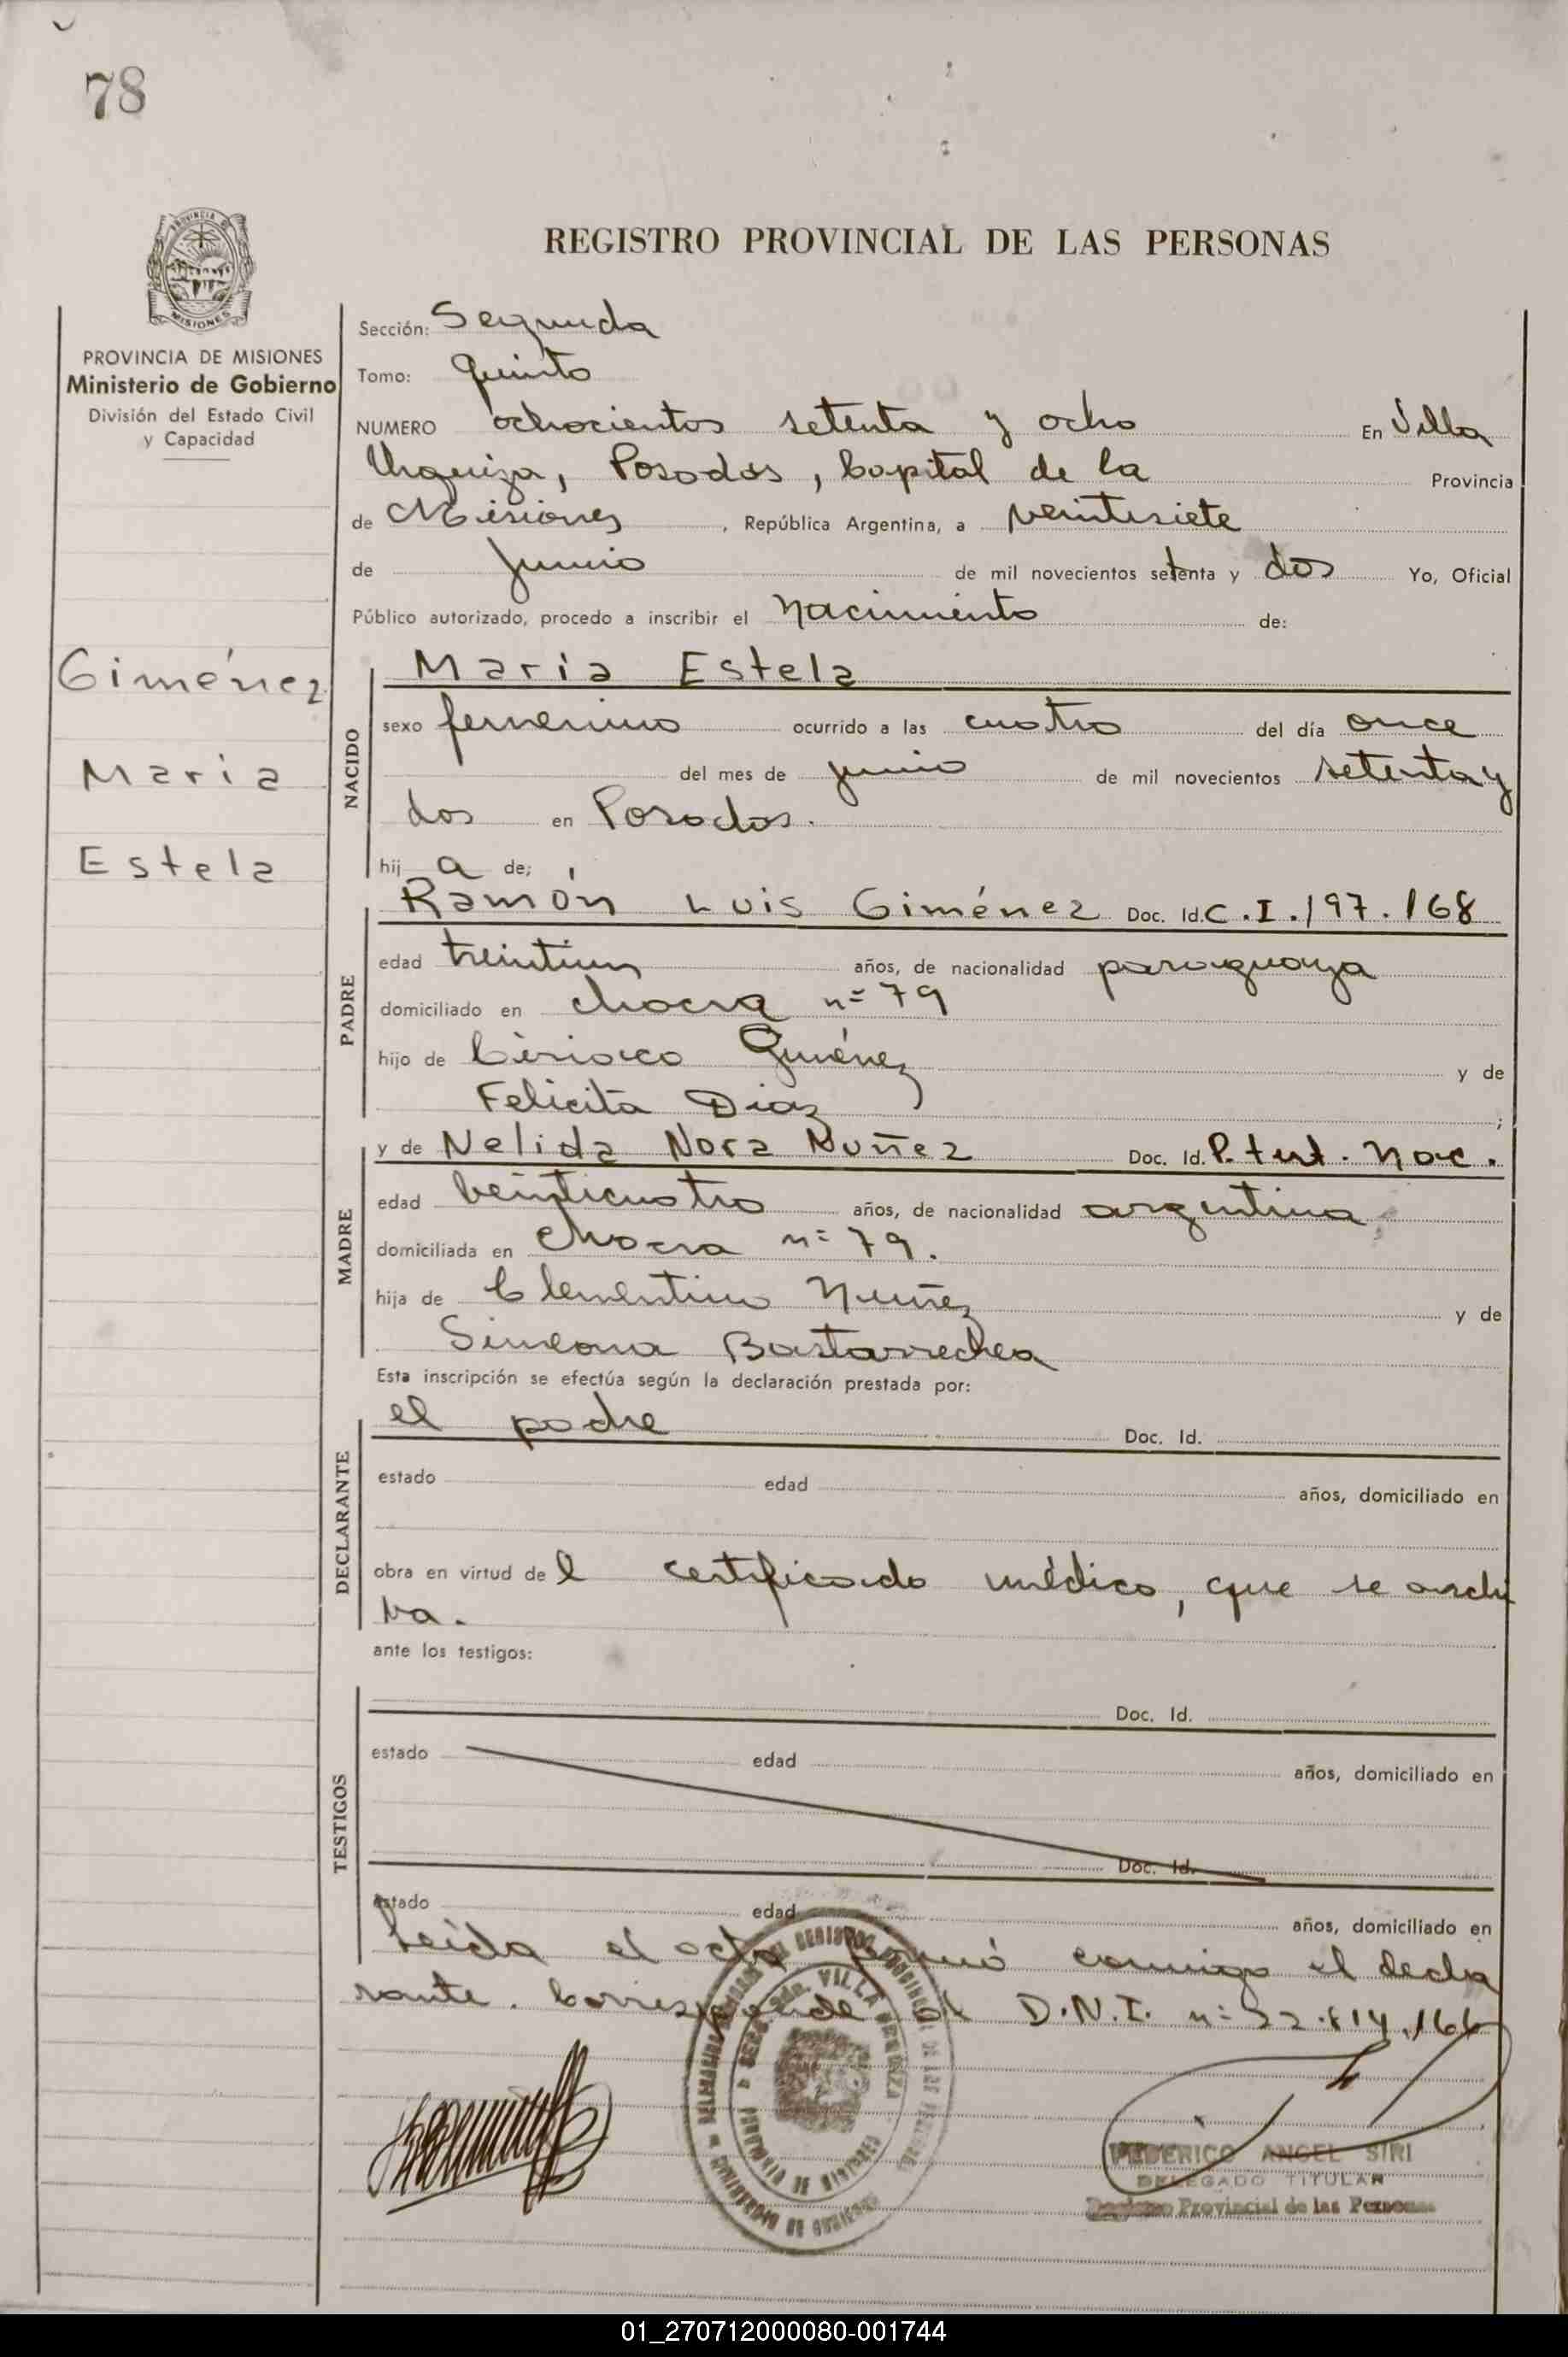 78
REGISTRO PROVINCIAL DE LAS PERSONAS
MISIONES
PROVINCIA DE MISIONES
Ministerio de Gobierno
División del Estado Civil
y Capacidad
Giménez
María
Estela
Sección: Segunda
Tomo: Quinto
NUMERO ochocientos setenta y ocho En Villa
Urquiza, Posadas, Capital de la Provincia
de Misiones, República Argentina, a veintisiete
de Junio de mil novecientos setenta y dos Yo, Oficial
Público autorizado, procedo a inscribir el Nacimiento de:
NACIDO
María Estela
sexo femenino ocurrido a las cuatro del día once
del mes de junio de mil novecientos setenta y
dos en Posadas.
hija de;
PADRE
Ramón Luis Giménez Doc. Id. C.I. 197.168
edad treintiun años, de nacionalidad paraguaya
domiciliado en chacra nº 79
hijo de Ciriaco Giménez y de
Felicita Diaz;
MADRE
y de Nelida Nora Nuñez Doc. Id. P. tert. Nac.
edad veinticuatro años, de nacionalidad argentina,
domiciliada en chacra nº 79.
hija de Clementino Nuñez y de
Simeona Bastarrechea
Esta inscripción se efectúa según la declaración prestada por:
DECLARANTE
el padre Doc. Id.
estado edad años, domiciliado en
obra en virtud del certificado médico, que se archi
va.
ante los testigos:
TESTIGOS
Doc. Id.
estado edad años, domiciliado en
Doc. Id.
estado edad años, domiciliado en
Leída el acta firmó conmigo el decla
rante. Corresponde al D.N.I. nº
VILLA URQUIZA
FEDERICO ANGEL SIRI
DELEGADO TITULAR
Registro Provincial de las Personas
01_270712000080-001744